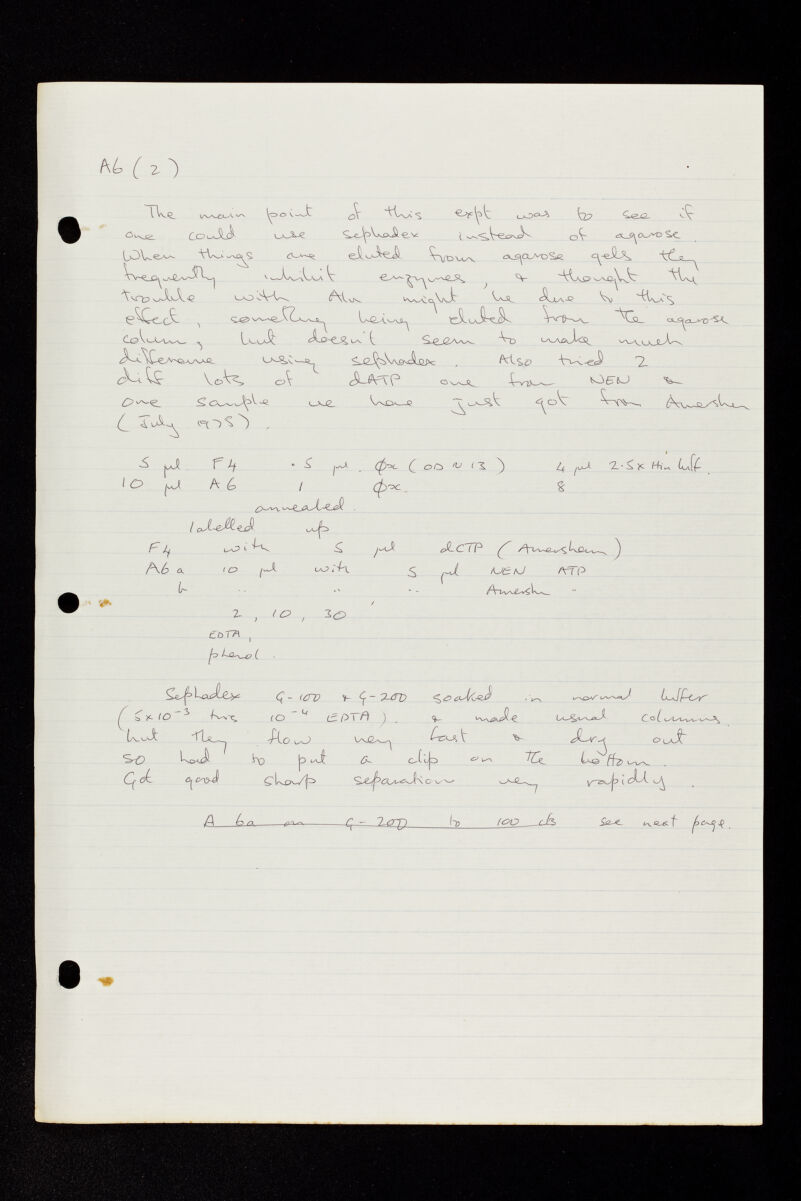 A6 (2)
The main point of this expt was to see if
one could use sephadex instead of agarose.
When things are eluted from agarose gels they
frequently inhibit enzymes, & thought the
trouble with Alu might be due to this
effect, something being eluted from the agarose
column, but doesn't seem to make much
difference using sephadex. Also tried 2
diff lots of dATP one from NEN &
one sample we have just got from Amersham
(July 1975).
5 µl F4 .5 µl. Øx (OD ~ 13) 4 µl 2.5x Hin buff.
10 µl A6 1 Øx. 8
annealed.
labelled up
F4 with 5 µl dCTP (Amersham)
A6 a 10 µl with 5 µl NEN ATP
b " " " Amersham -
2, 10, 30'
EDTA,
phenol.
Sephadex G-100 & G-200 soaked in normal buffer
(5x10⁻³ tris 10⁻⁴ EDTA). & made usual columns.
but they flow very fast & dry out
so had to put a clip on the bottom.
Got good sharp separation very rapidly.
A 6a on G-200 to 100 cts see next page.